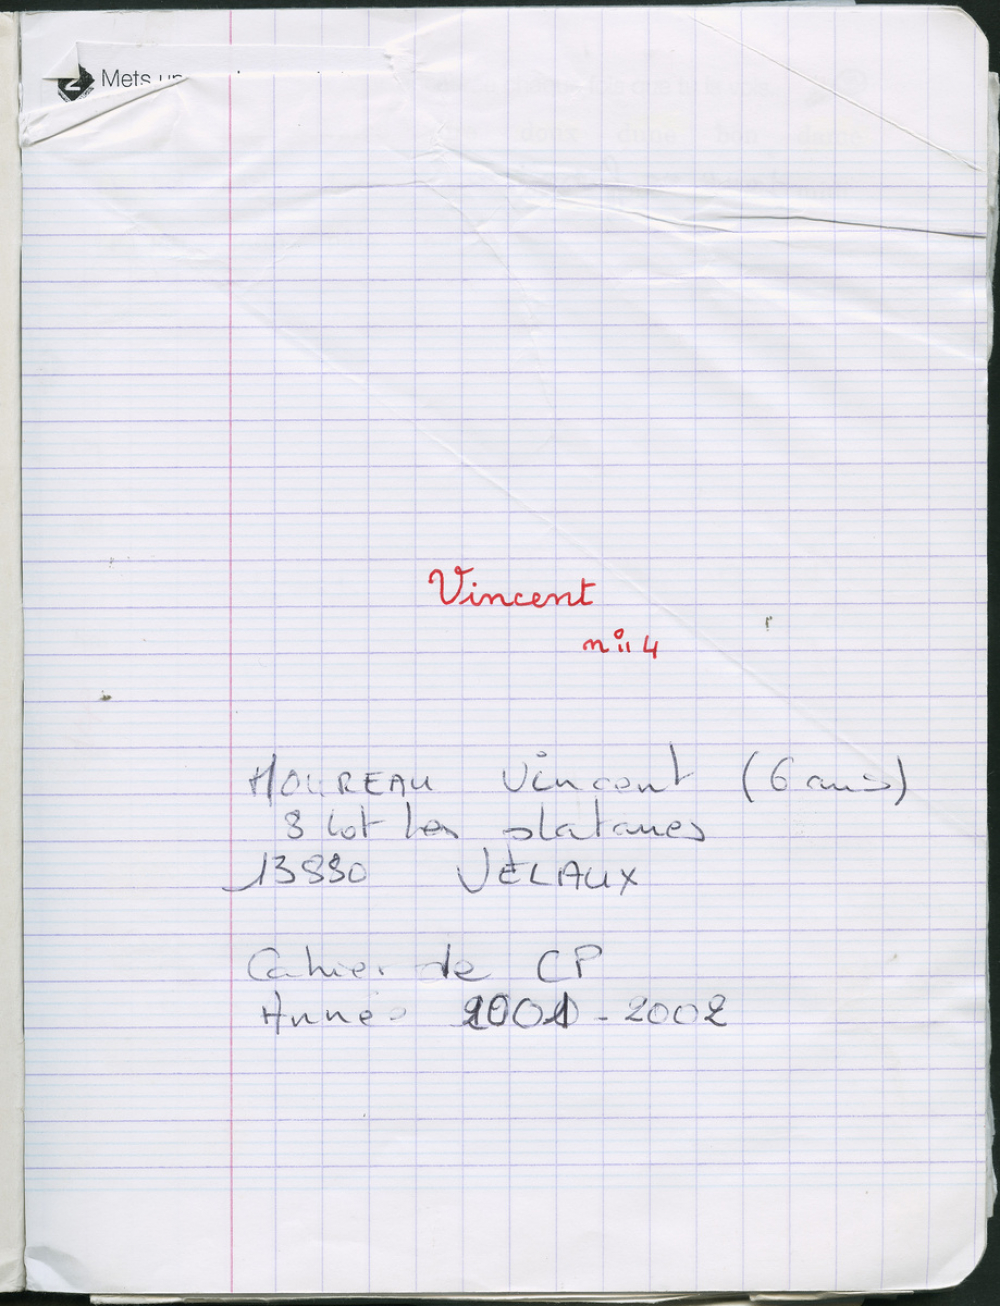 2 Mets un
Vincent
n° 4
MOUREAU Vincent (6 ans)
8 lot les platanes
13880 VELAUX
Cahier de CP
Année 2001-2002